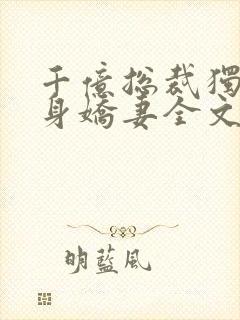 千億總裁獨
身嬌妻全文
明藍風